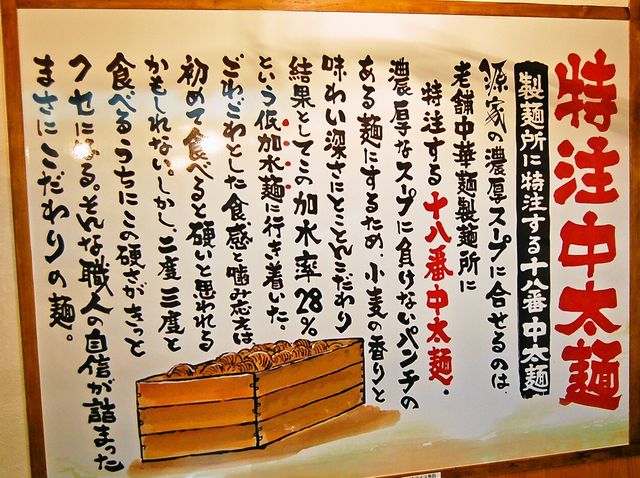 特注中太麺
製麺所に特注する十八番中太麺
源家の濃厚スープに合せるのは、
老舗中華麺製麺所に
特注する十八番中太麺。
濃厚なスープに負けないパンチの
ある麺にするため、小麦の香りと
味わい深さにとことんこだわり
結果としてこの加水率28%
という低加水麺に行き着いた。
ごわごわとした食感と噛み応えは
初めて食べると硬いと思われる
かもしれない。しかし、二度三度と
食べるうちにこの硬さがきっと
クセになる。そんな職人の自信が詰まった
まさにこだわりの麺。